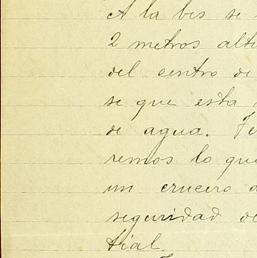 A la bes se
2 metros alti
del sentro de
se que esta
de agua.
remos lo que
un crucero
seguridad de
tial.